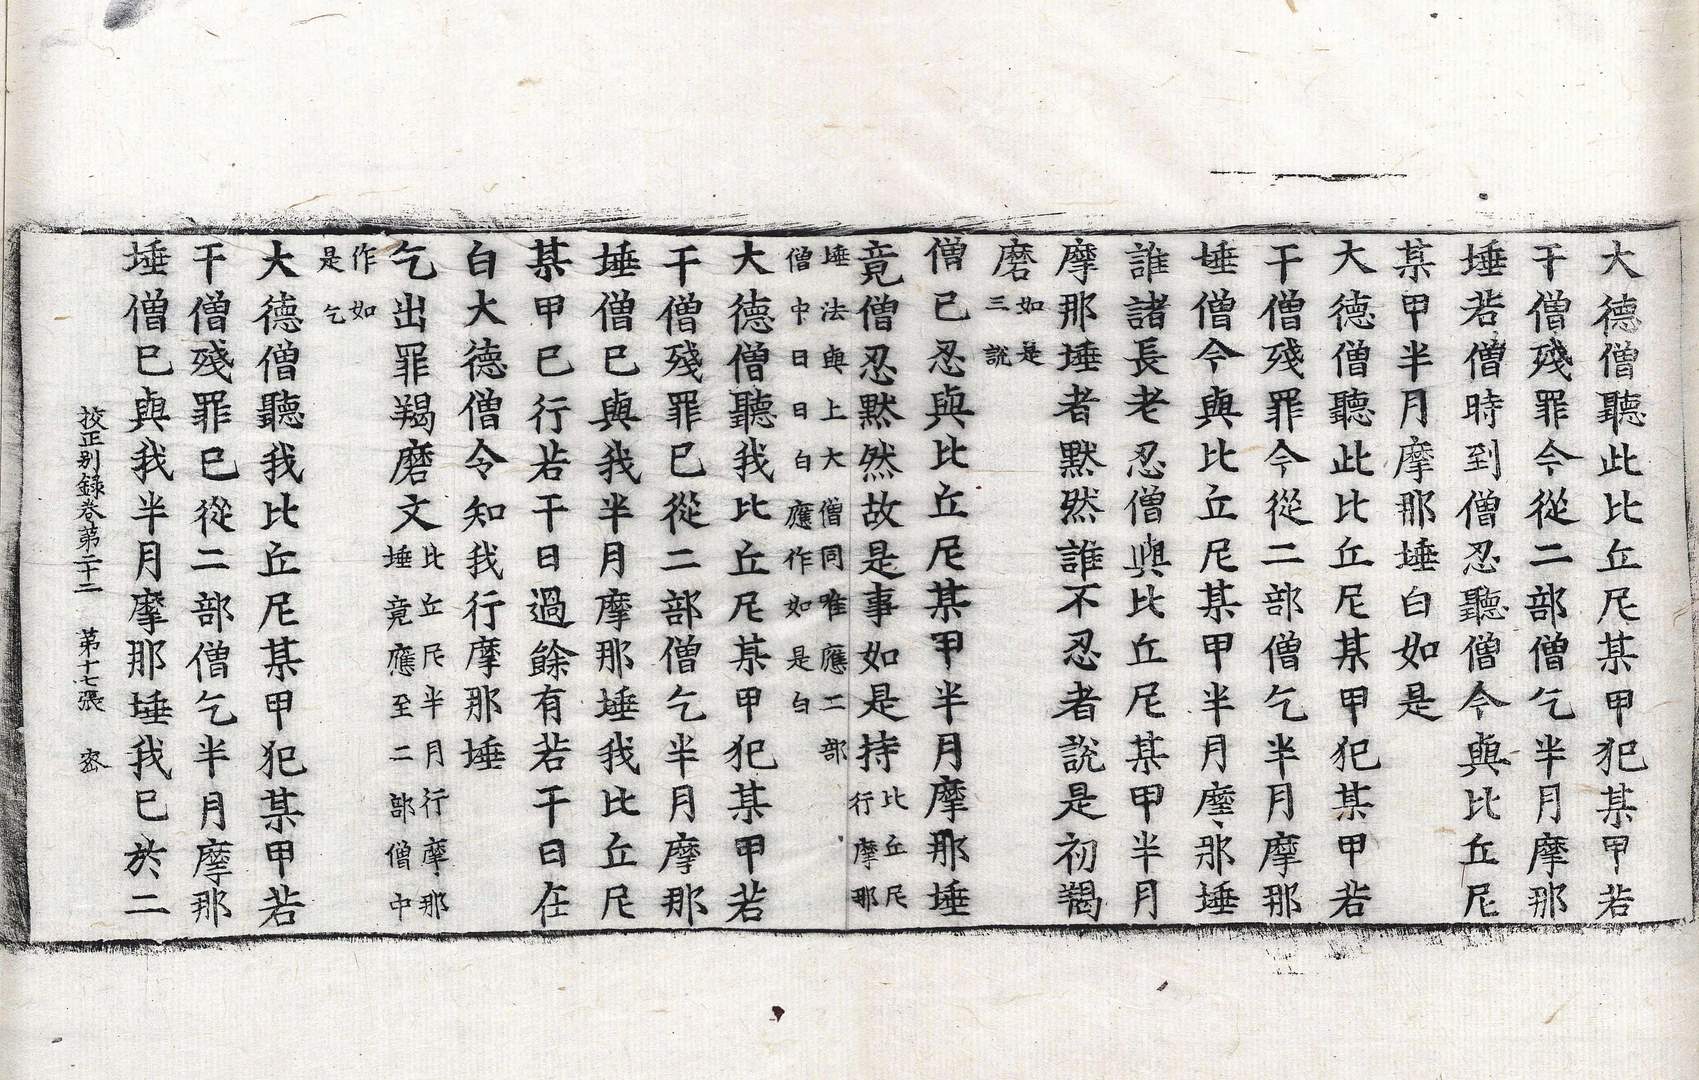 大德僧聽此比丘尼某甲犯某甲若
干僧殘罪今從二部僧乞半月摩那
埵若僧時到僧忍聽僧今與比丘尼
某甲半月摩那埵白如是
大德僧聽此比丘尼某甲犯某甲若
干僧殘罪今從二部僧乞半月摩那
埵僧今與比丘尼某甲半月摩那埵
誰諸長老忍僧與比丘尼某甲半月
摩那埵者默然誰不忍者說是初羯
磨如是三說
僧已忍與比丘尼某甲半月摩那埵
竟僧忍默然故是事如是持比丘尼行摩那
埵法與上大僧同唯應二部
僧中日日白應作如是白
大德僧聽我比丘尼某甲犯某甲若
干僧殘罪已從二部僧乞半月摩那
埵僧已與我半月摩那埵我比丘尼
某甲已行若干日過餘有若干日在
白大德僧令知我行摩那埵
乞出罪羯磨文比丘尼半月行摩那埵竟應至二部僧中
作如是乞
大德僧聽我比丘尼某甲犯某甲若
干僧殘罪已從二部僧乞半月摩那
埵僧已與我半月摩那埵我已於二
挍正别録卷第二十二 第十七張 宻